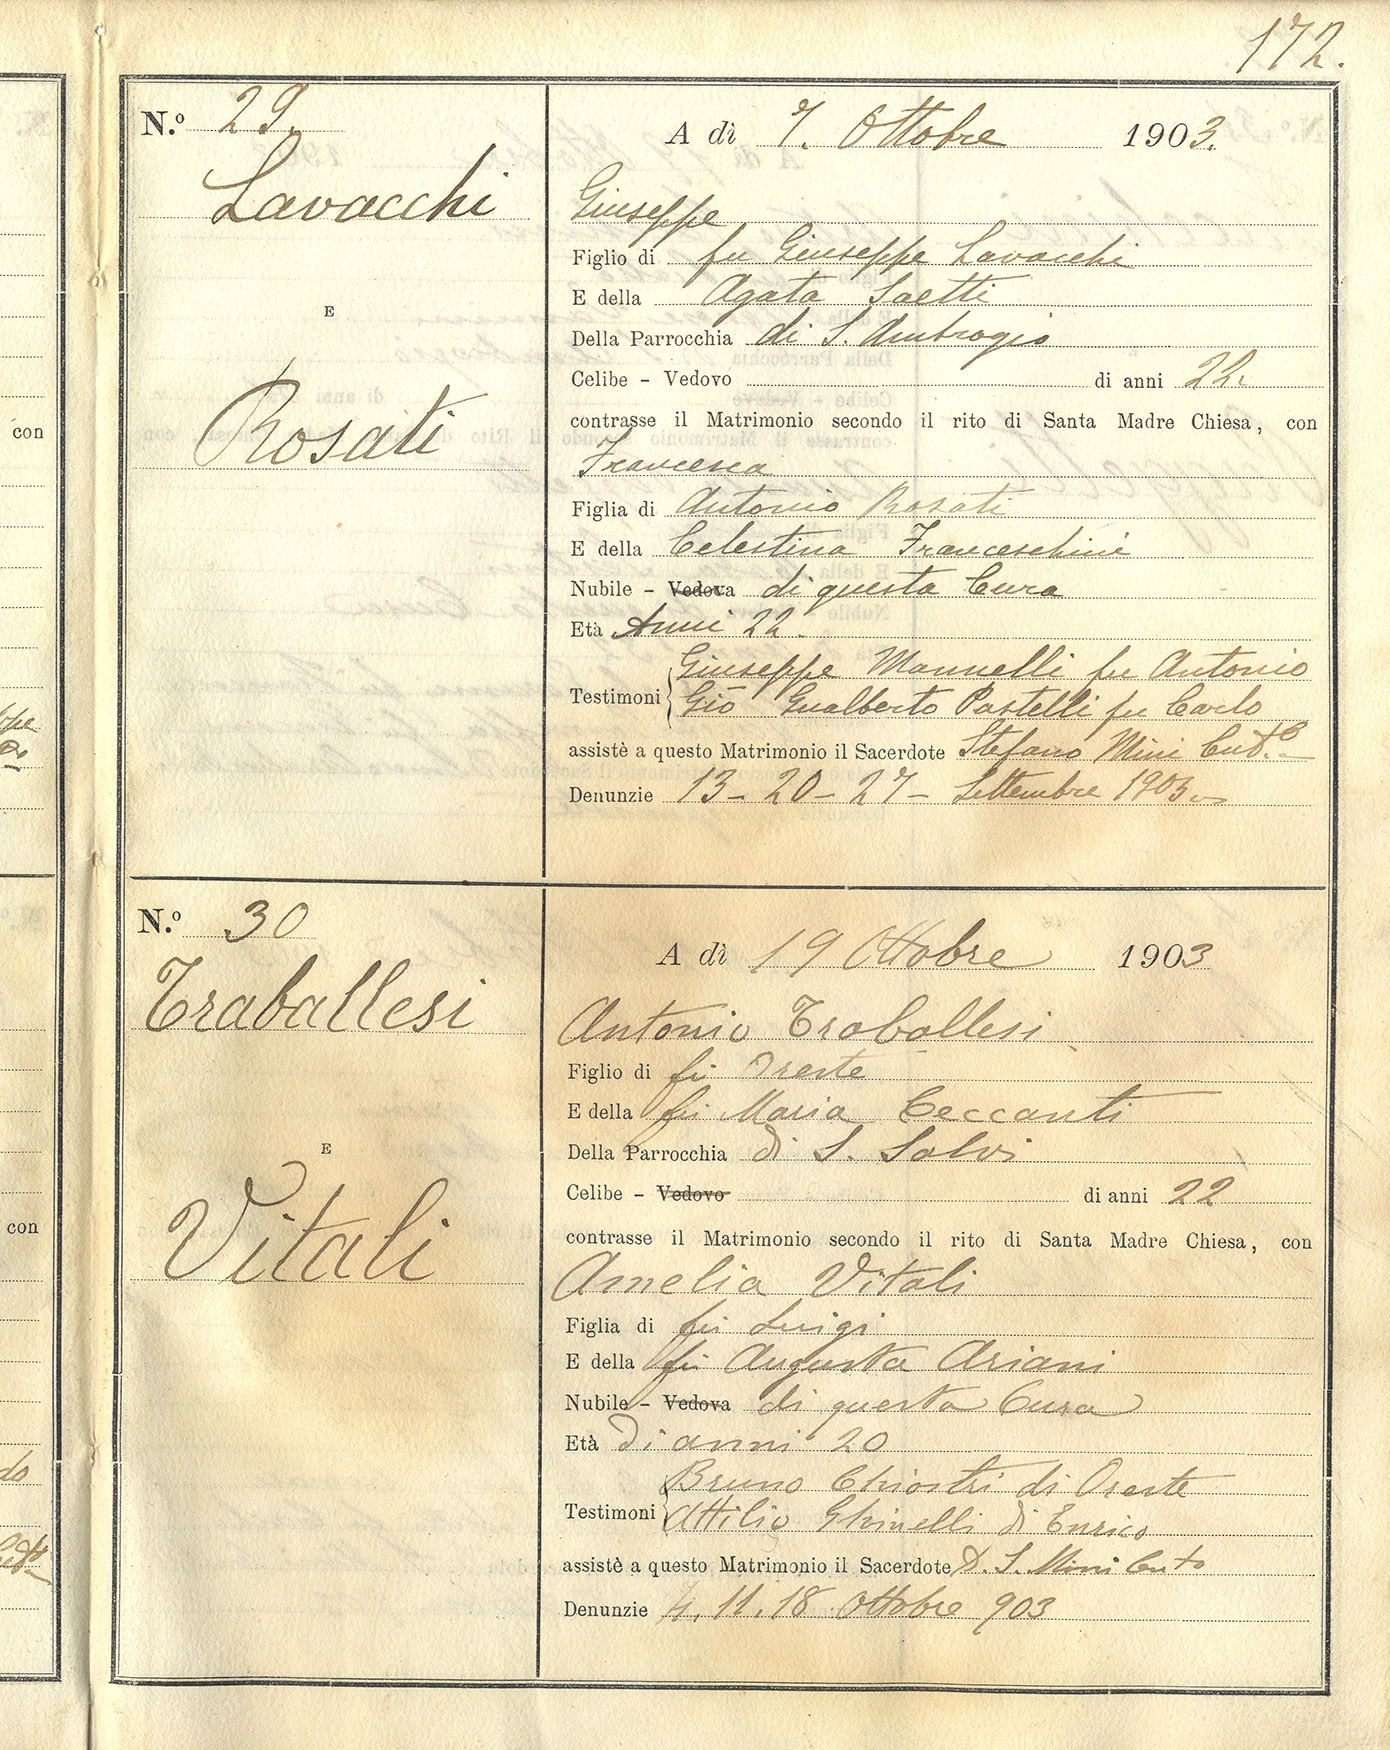 172.
N.º 29.
Lavacchi
E
Rosati
A dì 7. Ottobre 1903.
Giuseppe
Figlio di fu Giuseppe Lavacchi
E della Agata Saetti
Della Parrocchia di S. Ambrogio
Celibe - Vedovo di anni 22.
contrasse il Matrimonio secondo il rito di Santa Madre Chiesa, con
Francesca
Figlia di Antonio Rosati
E della Celestina Franceschini
Nubile - Vedova di questa Cura
Età Anni 22.
Giuseppe Mannelli fu Antonio
Testimoni
Gio Gualberto Pastelli fu Carlo
assistè a questo Matrimonio il Sacerdote Stefano Mini
Denunzie 13 - 20 - 27 - Settembre 1903
N.º 30
Traballesi
E
Vitali
A dì 19 Ottobre 1903
Antonio Traballesi
Figlio di fu Oreste
E della fu Maria Ceccanti
Della Parrocchia di S. Salvi
Celibe - Vedovo di anni 22
contrasse il Matrimonio secondo il rito di Santa Madre Chiesa, con
Amelia Vitali
Figlia di fu Luigi
E della fu Augusta Ariani
Nubile - Vedova di questa Cura
Età Di anni 20
Bruno Chiostri di Oreste
Testimoni
Attilio Ghinelli di Enrico
assistè a questo Matrimonio il Sacerdote D. S. Mini Cur.to
Denunzie 4. 11. 18 Ottobre 903
con
con
do